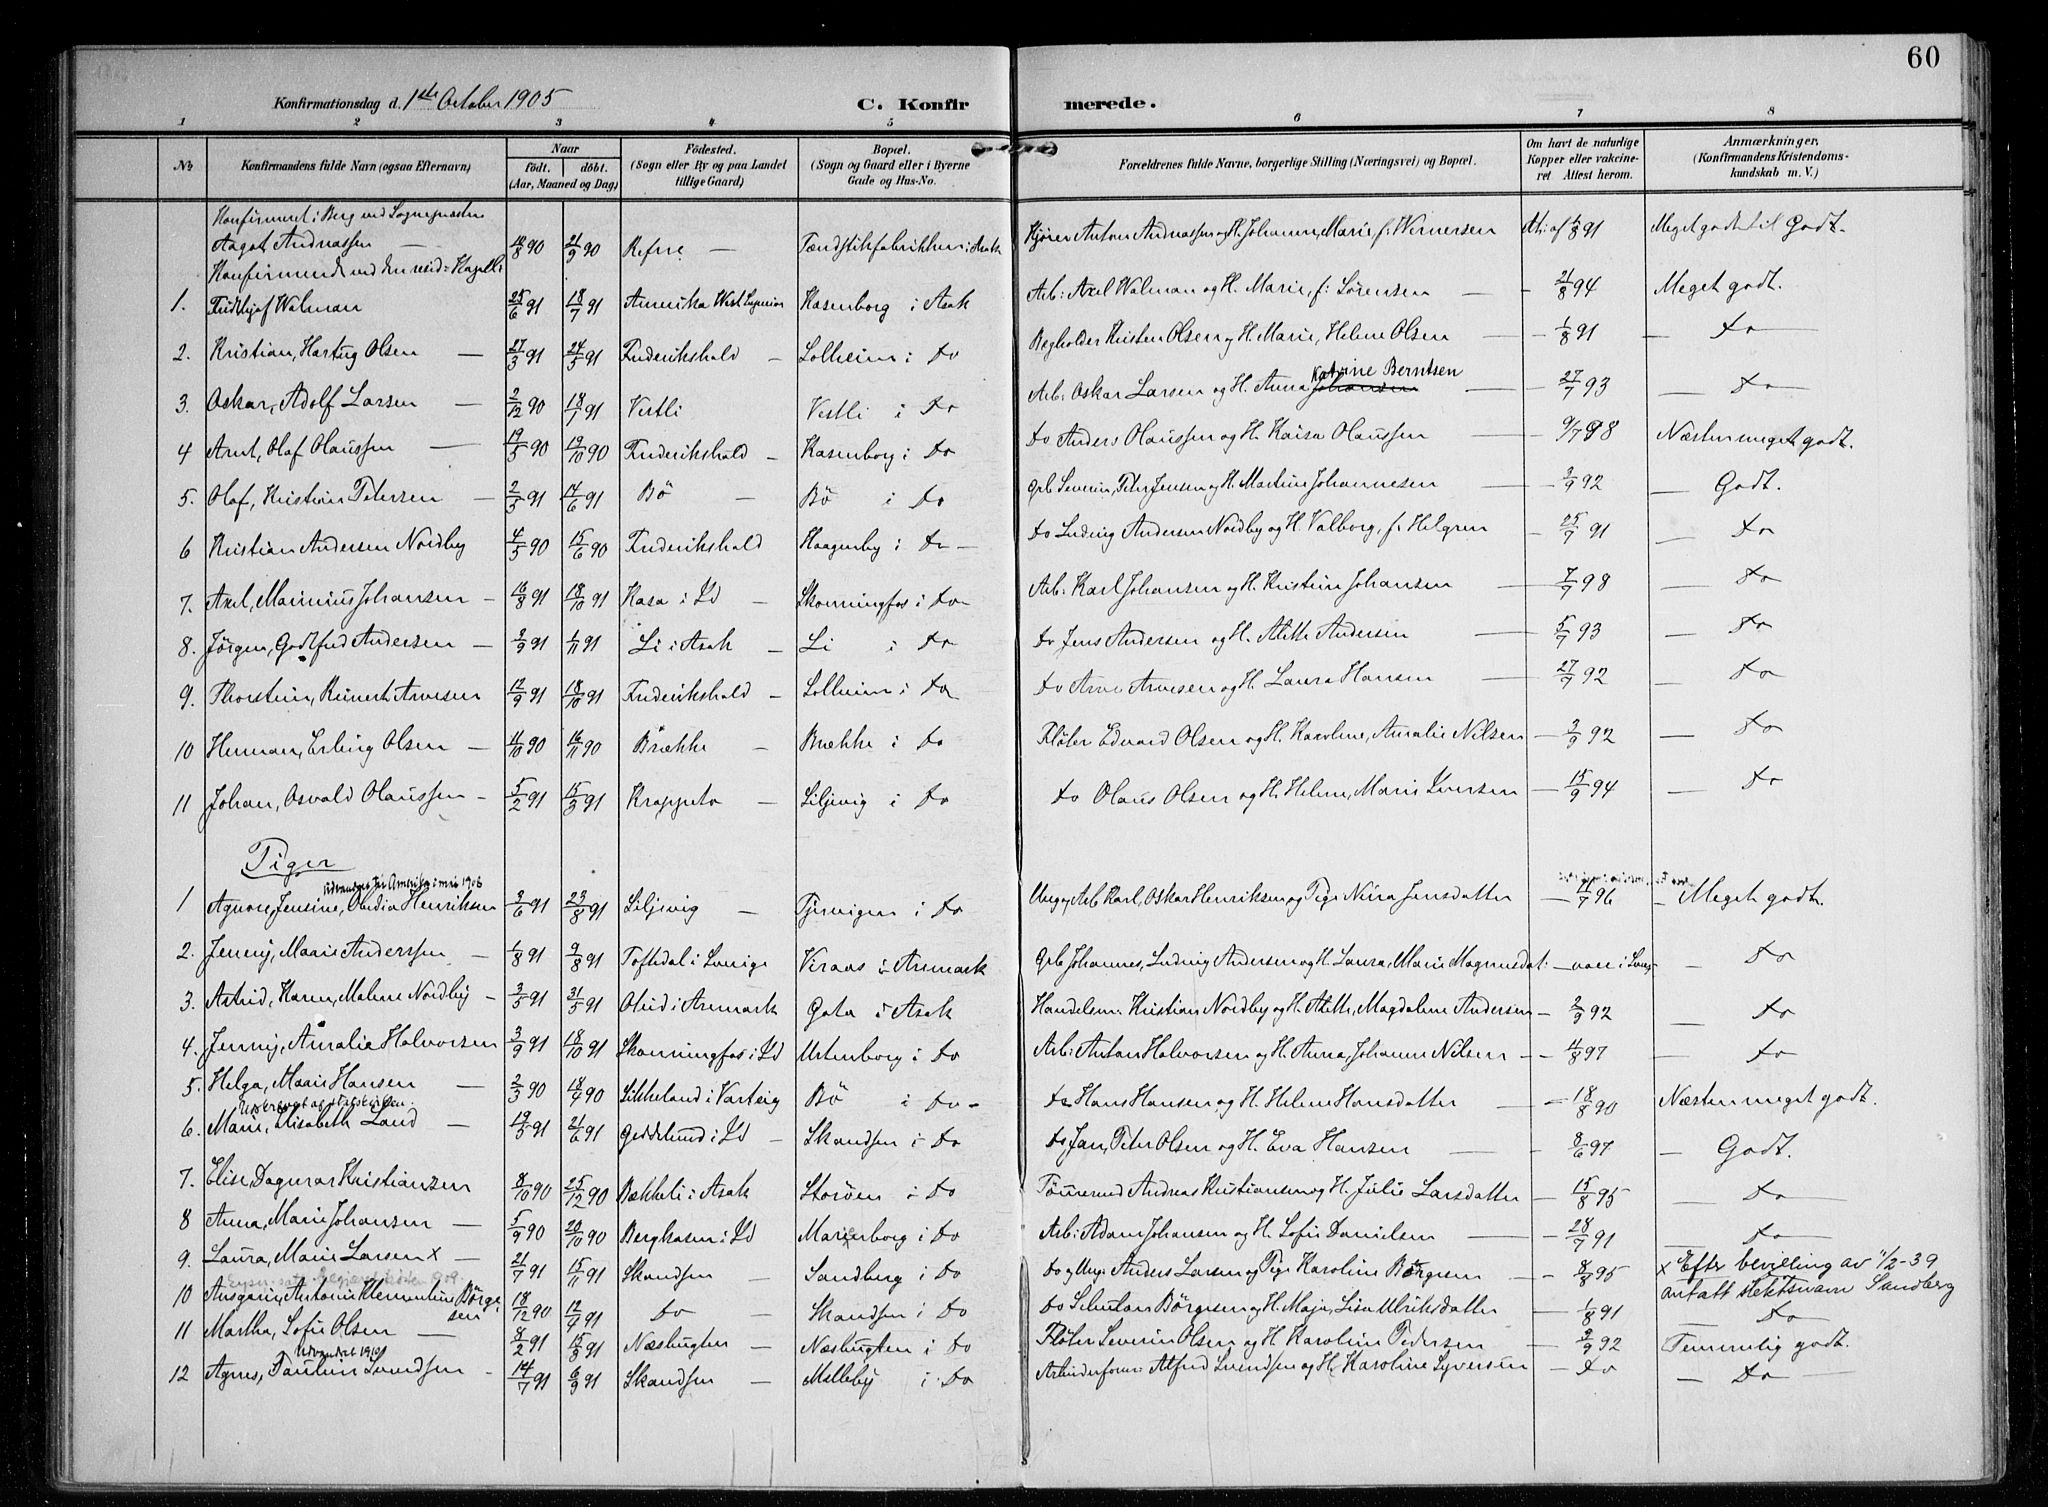 60
Konfirmationsdag d. 1ste October 1905 C. Konfirmerede.
1 2 3 4 5 6 7 8
No. Konfirmandens fulde Navn (ogsaa Efternavn) Naar født. døbt. (Aar, Maaned og Dag) Fødested. (Sogn eller By og paa Landet tillige Gaard) Bopæl. (Sogn og Gaard eller i Byerne Gade og Hus-No. Forældrenes fulde Navne, borgerlige Stilling (Næringsvei) og Bopæl. Om havt de naturlige Kopper eller vakcineret Attest herom. Anmærkninger, (Konfirmandens Kristendomskundskab m. V.)
Konfirmeret i Berg ved Sognepresten
Aagot Andreassen 21/9 90 Refne Tændstikfabrikken i Asak Kjører Anton Andreassen og H. Johanne, Marie f. Wernersen At: af 91 Meget godt til Godt.
Konfirmerede ved den resid: Kapell:
1. Fridthjof Walman 25/6 91 18/7 91 Amerika Kasenborg i Asak Arb: Axel Walman og H. Marie, f: Sørensen 21/8 94 Meget godt.
2. Kristian, Hartvig Olsen 27/3 91 24/5 91 Frederikshald Solheim i Do Kristen Olsen og H. Marie, Helene Olsen 1/8 91 Do
3. Oskar, Adolf Larsen 2/12 90 18/1 91 Vestli Vestli i Do Arb: Oskar Larsen og H. Anna Johansen Katrine Berntsen 27/7 93 Do
4 Arnt, Olaf Olaussen 19/5 90 19/10 90 Frederikshald Kasenborg i Do Do Anders Olaussen og H. Kaisa Olaussen 9/7 98 Næsten meget godt.
5. Olaf, Kristian Petersen 2/3 91 14/6 91 Bö Bö i Do Grb Severin, Peter Jensen og H. Martine Johannesen 3/9 92 Godt.
6 Kristian Andersen Nordby 4/5 90 15/6 90 Frederikshald Haagenby i Do Do Ludvig Andersen Nordby og H Valborg, f. Helgren 25/7 91 Do
7. Axel, Marinius Johansen 16/8 91 18/10 91 Kasa i Id Skonningfos i Do Arb: Karl Johansen og H. Kristine Johansen 7/7 98 Do
8. Jörgen, Godtfred Andersen 2/9 91 1/11 91 Li i Asak Li i Do Do Jens Andersen og H. Alette Andersen 5/7 93 Do
9. Thorstein, Reinert Arvesen 12/9 91 18/10 91 Frederikshald Solheim i Do Do Arve Arvesen og H. Laura Hansen 27/7 92 Do
10 Herman, Erling Olsen 11/10 90 16/11 90 Brække Brække i Do Fløter Edvard Olsen og H. Karoline, Amalie Nilsen 3/9 92 Do
11 Johan, Osvald Olaussen 5/2 91 15/3 91 Krappeto Liljevig i Do Do Olaus Olsen og H. Helene, Marie Iversen 15/9 94 Do
Piger
udvandret til Amerika i mai 1906
1 Agnore, Jensine, Otidia Henriksen 3/6 91 23/8 91 Liljevig Tjervigen i Do Ungk. Arb Karl, Oskar Henriksen og Pige Nina Jensdatter 11/7 96 Meget godt.
2. Jenny, Marie Anderssen 1/8 91 9/8 91 Toftedal i Sverige Viraas i Aremark Grb Johannes, Ludvig Andersen og H. Laura, Marie Magnusdat: vacc i Sverige Do
3. Astrid, Karen, Malene Nordby 3/5 91 31/5 91 Oteid i Aremark Gata i Asak Handelsm: Kristian Nordby og H. Alette, Magdalene Andersen 2/9 92 Do
4. Jenny, Amalie Halvorsen 3/9 91 18/10 91 Skonningfos i Id Urtenborg i Do Arb: Anton Halvorsen og H. Anna, Johanne Nilsen 11/8 97 Do
5. Helga, Marie Hansen 2/3 90 18/4 90 Likkeland i Varteig Bö i Do Do Hans Hansen og H. Helene Hansdatter 18/8 90 Næsten meget godt.
Udskrevet af statskirken.
6. Marie, Elisabeth Lund 19/5 91 21/6 91 Geddelund i Id Skandsen i Do Do Jan, Peter Olsen og H. Eva Hansen 8/6 97 Godt.
7. Elise Dagmar Kristiansen 8/10 90 25/12 90 Bækkeli i Asak Storöen i Do Tömmermd Andreas Kristiansen og H. Julie Larsdatter 15/8 95 Do
8 Anna, Marie Johansen 5/9 90 20/10 90 Berghasen i Id Marienborg i Do Arb: Adam Johansen og H. Sofie Danielsen 28/7 91 Do
9. Laura, Marie Larsen x 21/7 91 15/11 91 Skandsen Sandberg i Do Do og Ung: Anders Larsen og Pige Karoline Børgesen 8/8 95 x Efter bevilling av 11/2-39 antatt slektsnavn Sandberg
10 Ansgarie, Antonie Klementine Börgesen 18/12 90 12/4 91 Do Skandsen i Do Do Sebulan Börgesen og H. Maja, Lisa Ulriksdatter 1/8 91 Do
11 Martha, Sofie Olsen 8/2 91 15/3 91 Næsbugten Næsbugten i Do Fløter Severin Olsen og H Karoline Pedersen 2/9 92 Temmelig godt.
udvandret 1910
12 Agnes, Pauline Svendsen 14/7 91 6/9 91 Skandsen Melleby i Do Arbeiderform: Alfred Svendsen og H. Karoline Syversen Do Do